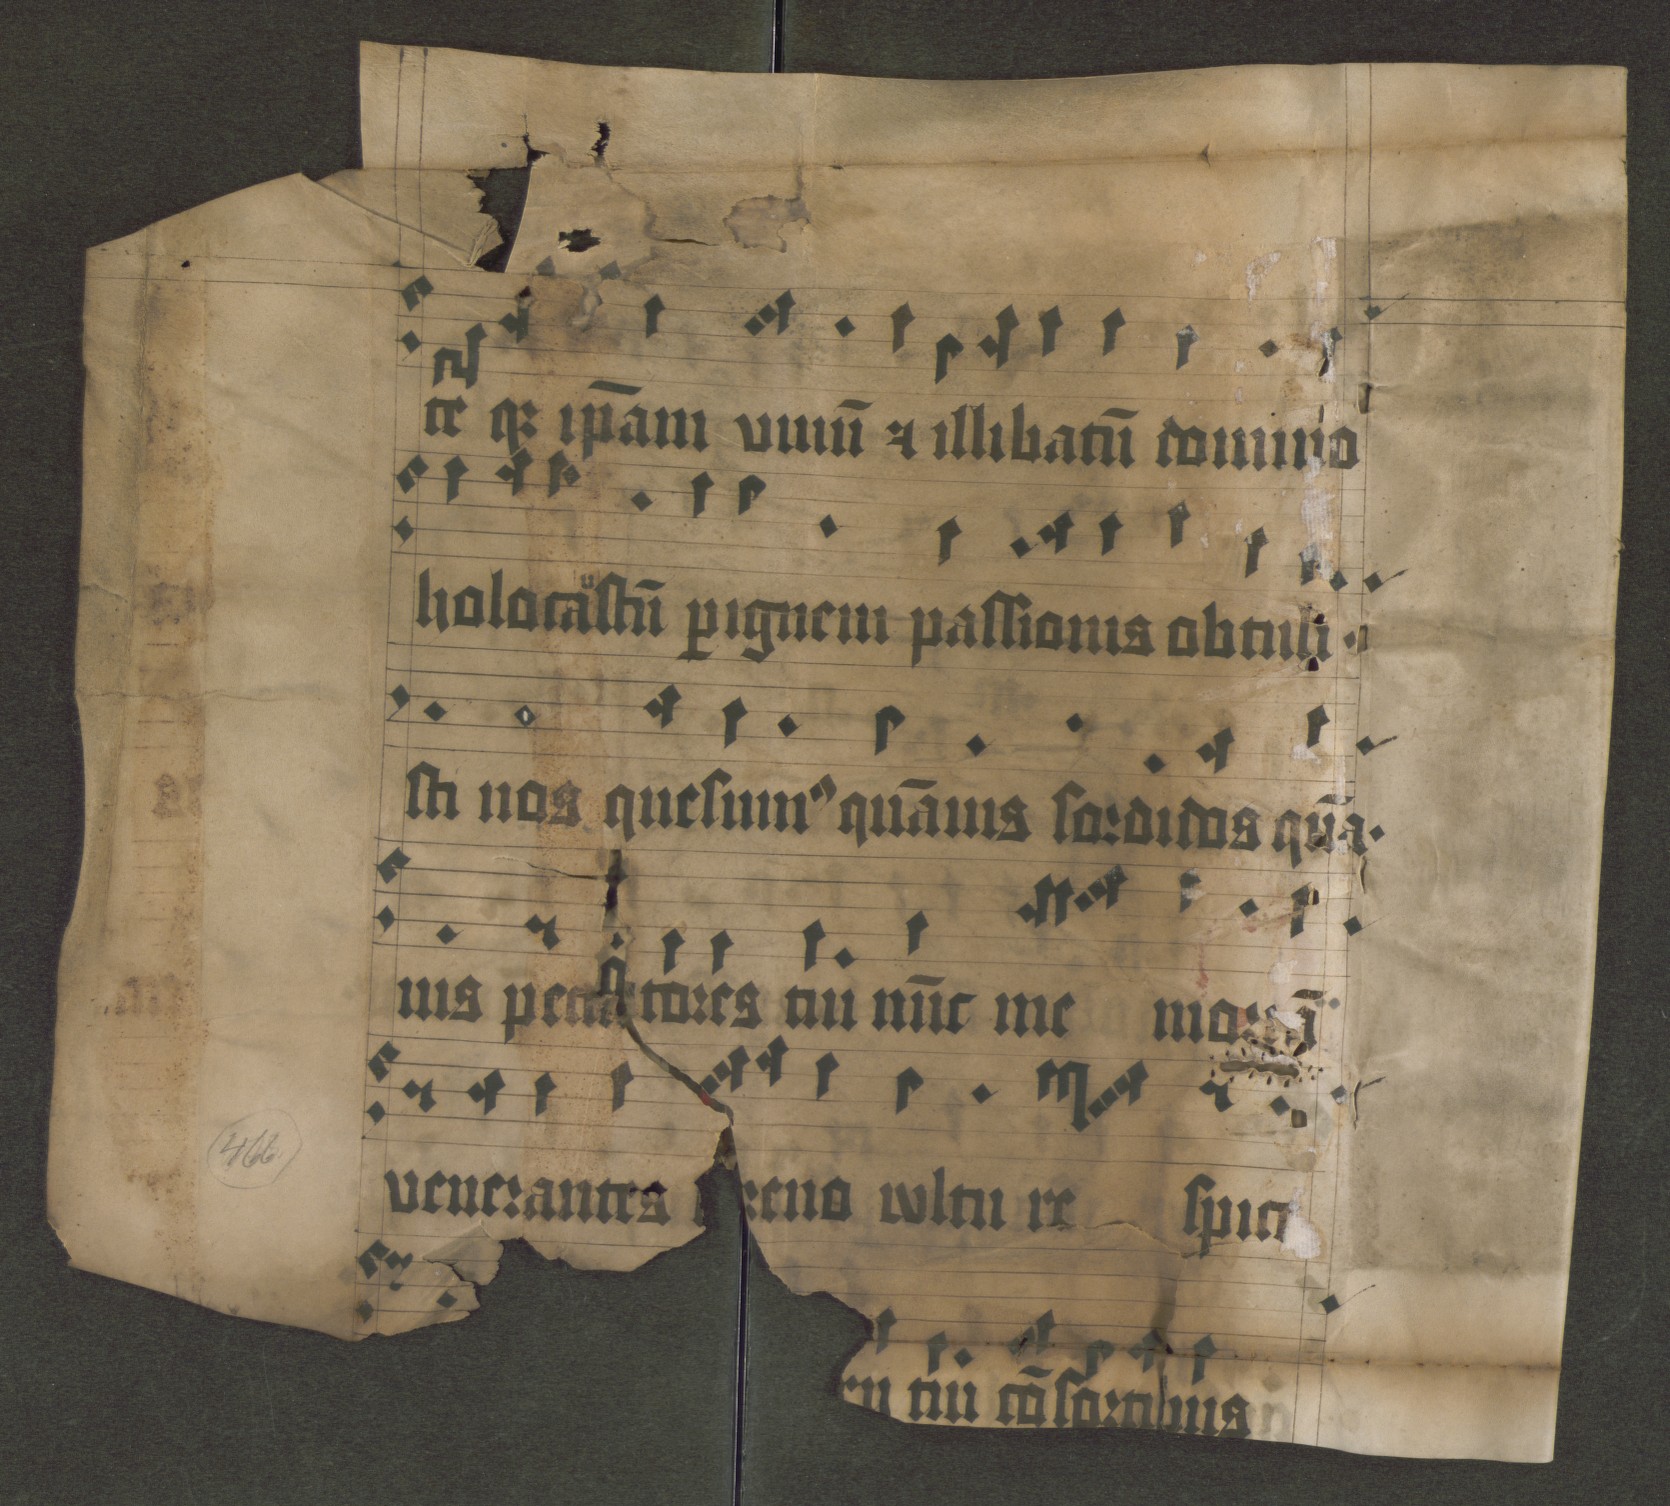 te qꝛ ip̄am viuū ⁊ illibatū domino
holocaͧstū ꝑ ignem passionis obtuli
sti nos quesumꝰ quāuis sordidos quā
uis peccatores tui nūc me morā
venerantes sereno wltu re spice
tui cōsortibus
466